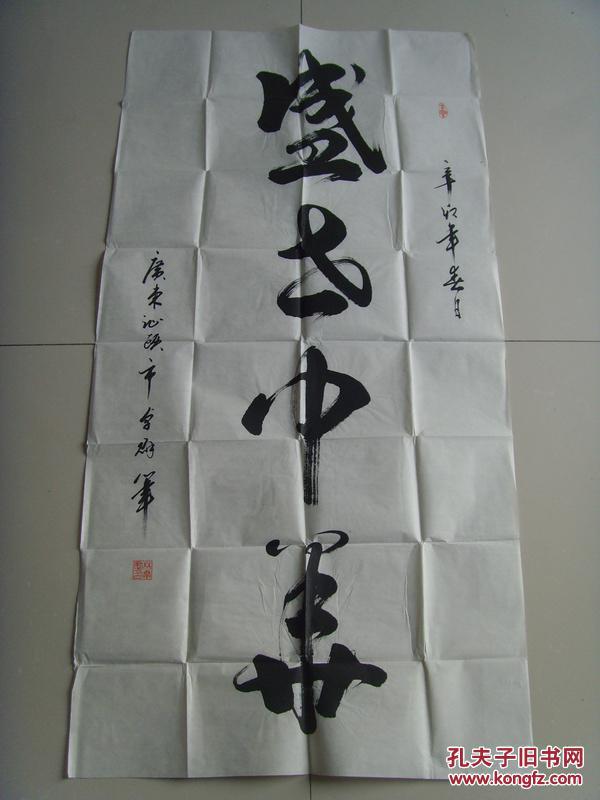 辛卯年春月
盛世中華
廣東汕頭市 筆
孔夫子旧书网
www.kongfz.com